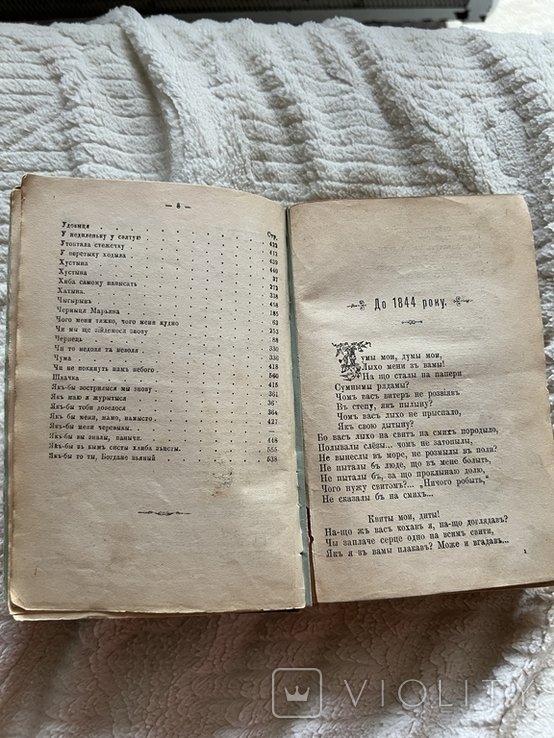 — 8 —
Стр.
Удовиця 423
У недиленьку у святую 412
Утоптала стежечку 439
У перетыку ходыла 440
Хустына 37
Хустына 273
Хиба самому напысать 438
Хатына. 185
Чыгырынъ 63
Черныця Марьяна 253
Чого мени тяжко, чого мени нудно 88
Чи мы ще зійдемося знову 330
Чернець 330
Чи то недоля та неволя 418
Чума 540
Чи не покынуть намъ небого 418
Швачка 361
Якъ-бы зострилися мы знову 361
Якъ маю я журитыся 364
Якъ-бы тоби довелося 427
Якъ-бы мени, мамо, намысто
Якъ-бы мени черевыкы.
Якъ-бы вы зналы, панычи. 448
Якъ-бы въ кымъ систы хлиба ззисты. 555
Якъ-бы то ты, Богдане пьяный 538
До 1844 року.
Думы мои, думы мои,
Лыхо мени зъ вамы!
На що сталы на папери
Сумнымы рядамы?
Чомъ васъ витеръ не розвіявъ
Въ степу, якъ пылыну?
Чомъ васъ лыхо не прыспало,
Якъ свою дытыну?
Бо васъ лыхо на свитъ на смихъ породыло,
Поливалы слёзы... чомъ не затопылы,
Не вынеслы въ море, не розмылы въ поли?
Не пыталы бъ люде, що въ мене болыть,
Не пыталы бъ, за що проклынаю долю,
Чого нужу свитомъ?... „Ничого робыть,"
Не сказалы бъ на смихъ...
Квиты мои, диты!
На-що жъ васъ кохавъ я, на-що доглядавъ?
Чы заплаче серце одно на всимъ свити,
Якъ я зъ вамы плакавъ? Може и вгадавъ...
1
VIOLITY